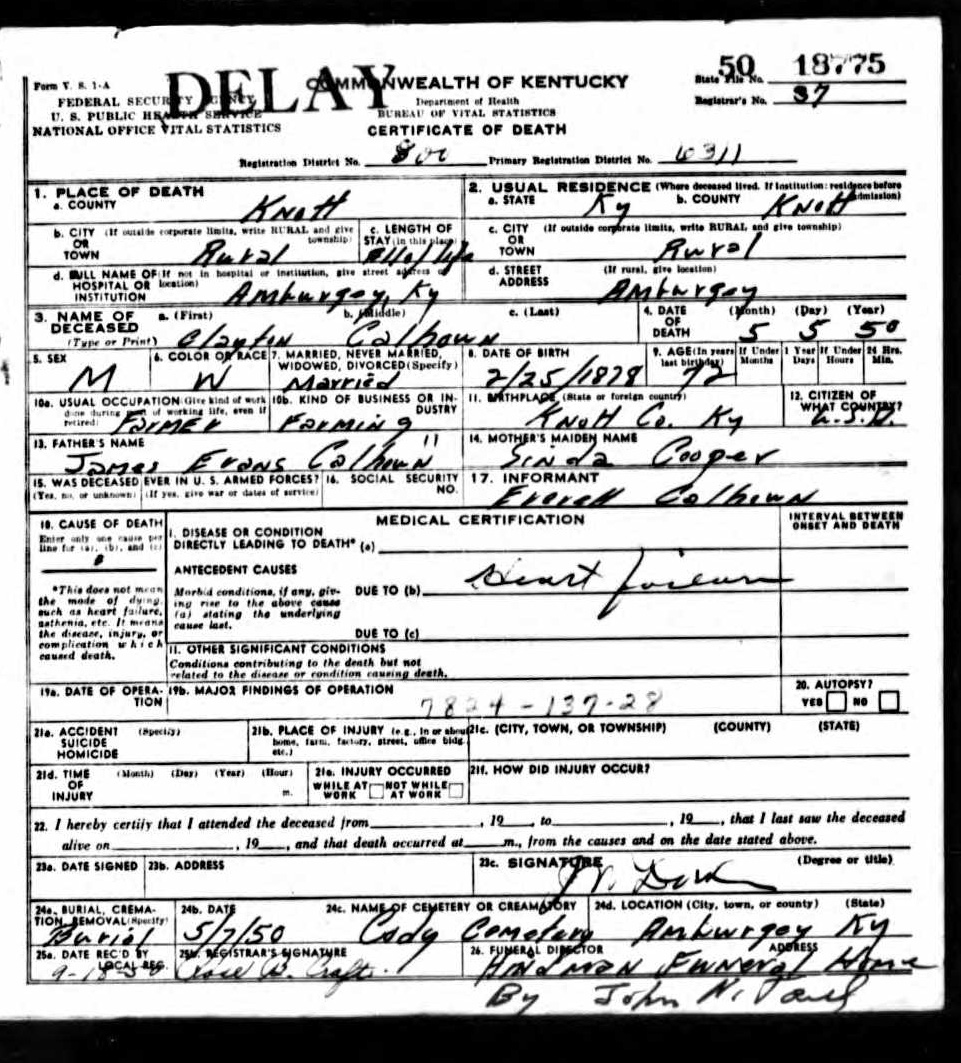 DELAY
Form V. S. 1-A
FEDERAL SECURITY AGENCY
U. S. PUBLIC HEALTH SERVICE
NATIONAL OFFICE VITAL STATISTICS
COMMONWEALTH OF KENTUCKY
Department of Health
BUREAU OF VITAL STATISTICS
CERTIFICATE OF DEATH
State File No. 50 18775
Registrar's No. 37
Registration District No. 800 Primary Registration District No. 6311
1. PLACE OF DEATH
a. COUNTY Knott
2. USUAL RESIDENCE (Where deceased lived. If Institution: residence before admission)
a. STATE Ky b. COUNTY Knott
b. CITY (If outside corporate limits, write RURAL and give township)
OR TOWN Rural
c. LENGTH OF STAY (in this place)
c. CITY (If outside corporate limits, write RURAL and give township)
OR TOWN Rural
d. FULL NAME OF (If not in hospital or institution, give street address or location)
HOSPITAL OR INSTITUTION Amburgey, Ky
d. STREET ADDRESS (If rural, give location)
Amburgey
3. NAME OF DECEASED (Type or Print)
a. (First) b. (Middle) c. (Last)
Clayton Calhoun
4. DATE OF DEATH (Month) (Day) (Year)
5 5 50
5. SEX M
6. COLOR OR RACE W
7. MARRIED, NEVER MARRIED, WIDOWED, DIVORCED (Specify)
Married
8. DATE OF BIRTH
2/25/1878
9. AGE (In years last birthday) 72
If Under 1 Year Months Days
If Under 24 Hrs. Hours Min.
10a. USUAL OCCUPATION (Give kind of work done during most of working life, even if retired)
Farmer
10b. KIND OF BUSINESS OR INDUSTRY
Farming
11. BIRTHPLACE (State or foreign country)
Knott Co. Ky
12. CITIZEN OF WHAT COUNTRY?
U.S.A.
13. FATHER'S NAME
James Evans Calhoun
14. MOTHER'S MAIDEN NAME
Sinda Cooper
15. WAS DECEASED EVER IN U. S. ARMED FORCES?
(Yes, no, or unknown) (If yes, give war or dates of service)
16. SOCIAL SECURITY NO.
17. INFORMANT
Everett Calhoun
18. CAUSE OF DEATH
Enter only one cause per line for (a), (b), and (c)
*This does not mean the mode of dying, such as heart failure, asthenia, etc. It means the disease, injury, or complication which caused death.
MEDICAL CERTIFICATION
INTERVAL BETWEEN ONSET AND DEATH
I. DISEASE OR CONDITION
DIRECTLY LEADING TO DEATH* (a)
ANTECEDENT CAUSES
Morbid conditions, if any, giving rise to the above cause (a) stating the underlying cause last.
DUE TO (b) Heart failure
DUE TO (c)
II. OTHER SIGNIFICANT CONDITIONS
Conditions contributing to the death but not related to the disease or condition causing death.
19a. DATE OF OPERATION
19b. MAJOR FINDINGS OF OPERATION
7824-137-28
20. AUTOPSY?
YES NO
21a. ACCIDENT SUICIDE HOMICIDE (Specify)
21b. PLACE OF INJURY (e.g., in or about home, farm, factory, street, office bldg. etc.)
21c. (CITY, TOWN, OR TOWNSHIP) (COUNTY) (STATE)
21d. TIME OF INJURY (Month) (Day) (Year) (Hour) m.
21e. INJURY OCCURRED
WHILE AT WORK NOT WHILE AT WORK
21f. HOW DID INJURY OCCUR?
22. I hereby certify that I attended the deceased from , 19 , to , 19 , that I last saw the deceased
alive on , 19 , and that death occurred at m., from the causes and on the date stated above.
23a. DATE SIGNED 23b. ADDRESS 23c. SIGNATURE (Degree or title)
24a. BURIAL, CREMATION, REMOVAL (Specify)
Burial
24b. DATE
5/7/50
24c. NAME OF CEMETERY OR CREAMATORY
Cody Cemetery
24d. LOCATION (City, town, or county) (State)
Amburgey Ky
25a. DATE REC'D BY LOCAL REG.
25b. REGISTRAR'S SIGNATURE
26. FUNERAL DIRECTOR ADDRESS
Hindman Funeral Home
By John